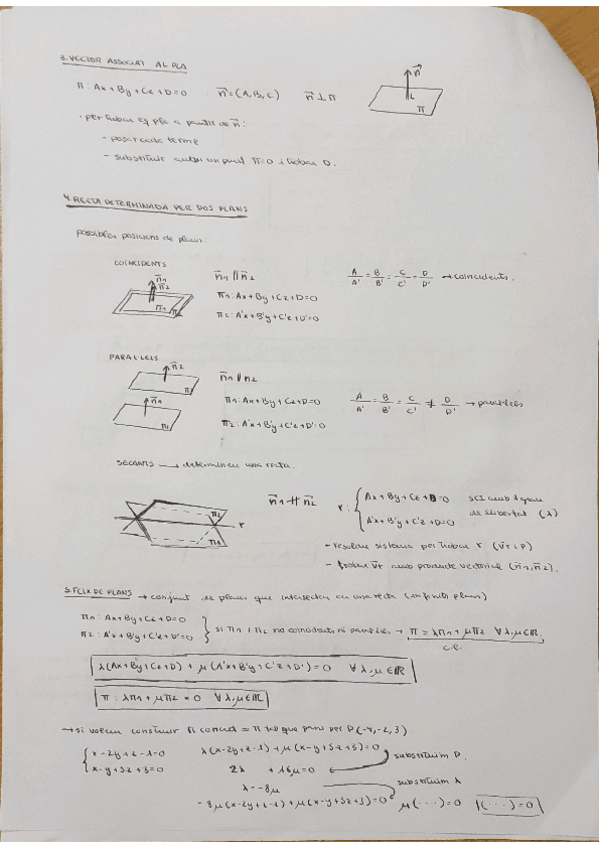 3. VECTOR ASSOCIAT AL PLA
π: Ax+By+Cz+D=0 · n⃗=(A,B,C) n⃗ ⊥ π
n⃗
π
· per trobar eq pla a partir de n⃗:
- posar cada terme
- substituir amb un punt π=0 i trobar D.
4. RECTA DETERMINADA PER DOS PLANS
possibles posicions de plans:
COINCIDENTS
n⃗1 n⃗2 π1 π2
n⃗1 ∥ n⃗2
A/A' = B/B' = C/C' = D/D' → coincidents.
π1: Ax+By+Cz+D=0
π2: A'x+B'y+C'z+D'=0
PARAL·LELS
n⃗2
n⃗1
n⃗1 ∥ n⃗2
π1: Ax+By+Cz+D=0
A/A' = B/B' = C/C' ≠ D/D' → paral·lels
π2: A'x+B'y+C'z+D'=0
SECANTS → determinen una recta.
π2 r π1
n⃗1 ∦ n⃗2
r: { Ax+By+Cz+D=0
A'x+B'y+C'z+D=0
SCI amb 1 grau de llibertat (λ)
- resoldre sistema per trobar r (v⃗r i P)
- trobar v⃗r amb producte vectorial (n⃗1, n⃗2).
5. FEIX DE PLANS → conjunt de plans que intersecten en una recta (infinits plans)
π1: Ax+By+Cz+D=0
π2: A'x+B'y+C'z+D'=0
} si π1 i π2 no coincidents ni paral·lels → π = λπ1 + μπ2 ∀ λ,μ∈ℝ.
c.l.
λ(Ax+By+Cz+D) + μ(A'x+B'y+C'z+D')=0 ∀ λ,μ∈ℝ
π: λπ1 + μπ2 = 0 ∀ λ,μ∈ℝ
→ si volem construir π concret = π tal que passi per P(-4,-2,3)
{ x-2y+z-1=0
x-y+5z+3=0
λ(x-2y+z-1)+μ(x-y+5z+3)=0
substituim P.
2λ + 16μ=0
λ=-8μ
substituim λ
-8μ(x-2y+z-1)+μ(x-y+5z+3)=0
μ(···)=0
1(···)=0